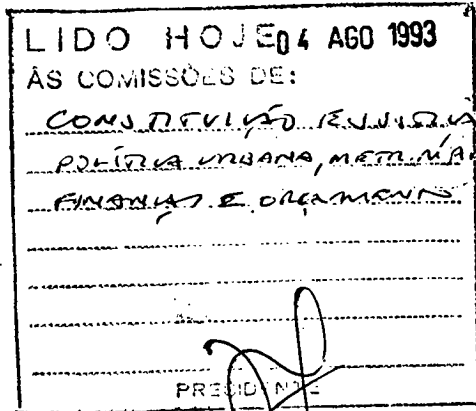 LIDO HOJE 04 AGO 1993
ÀS COMISSÕES DE:
CONSTITUIÇÃO E JUSTIÇA
POLÍTICA URBANA, METR. M.A.
FINANÇAS E ORÇAMENTO
PRESIDENTE